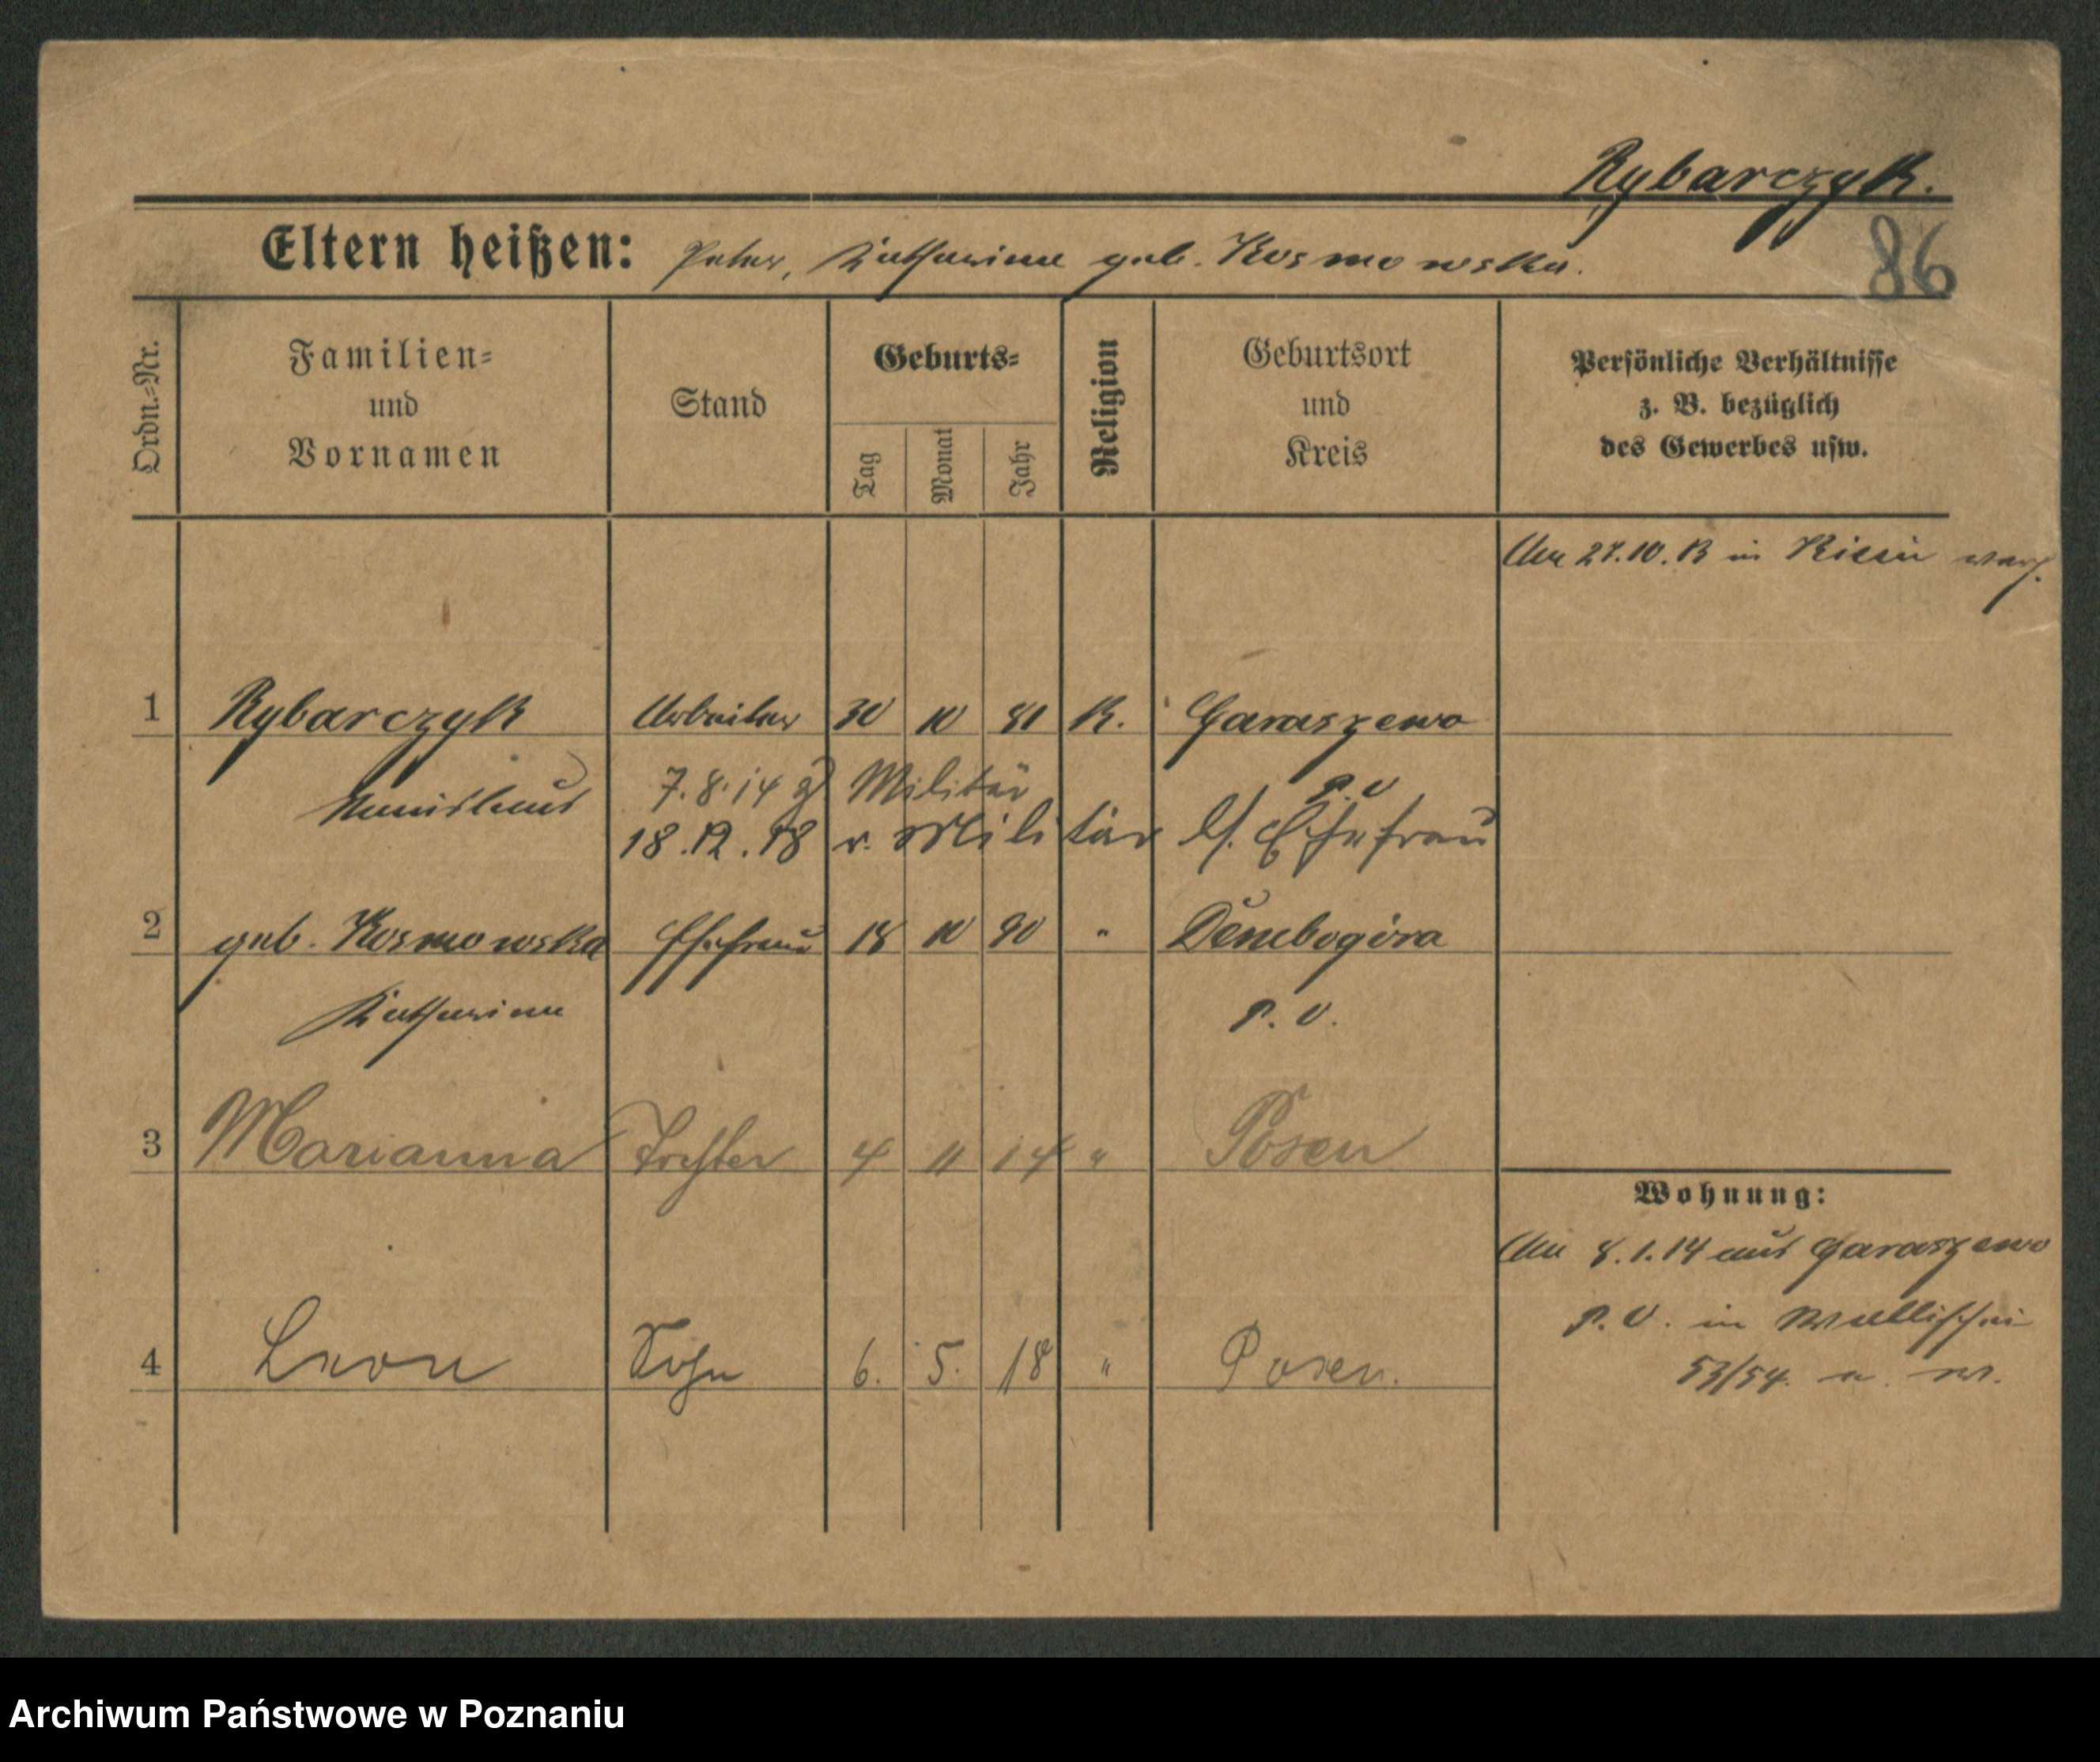 Rybarczyk.
86
Eltern heißen: Peter, Katharina geb. Kosmowska.
Ordn.=Nr.
Familien=
und
Vornamen
Stand
Geburts=
Tag
Monat
Jahr
Religion
Geburtsort
und
Kreis
Persönliche Verhältnisse
z. B. bezüglich
des Gewerbes usw.
27.10.13 in
1 Rybarczyk Arbeiter 30 10 81 K. Garaszewo
P. O
7.8.14 z Militär
18.12.18 v. Militär Ehefrau
2 geb. Kosmowska Ehefrau 18 10 90 " Dembogóra
Katharina P. O.
3 Marianna Tochter 4 11 14 " Posen
Wohnung:
8.1.14 aus Garaszewo
P. O. in Wallischei
53/54.
4 Leon Sohn 6. 5. 18 " Posen.
Archiwum Państwowe w Poznaniu